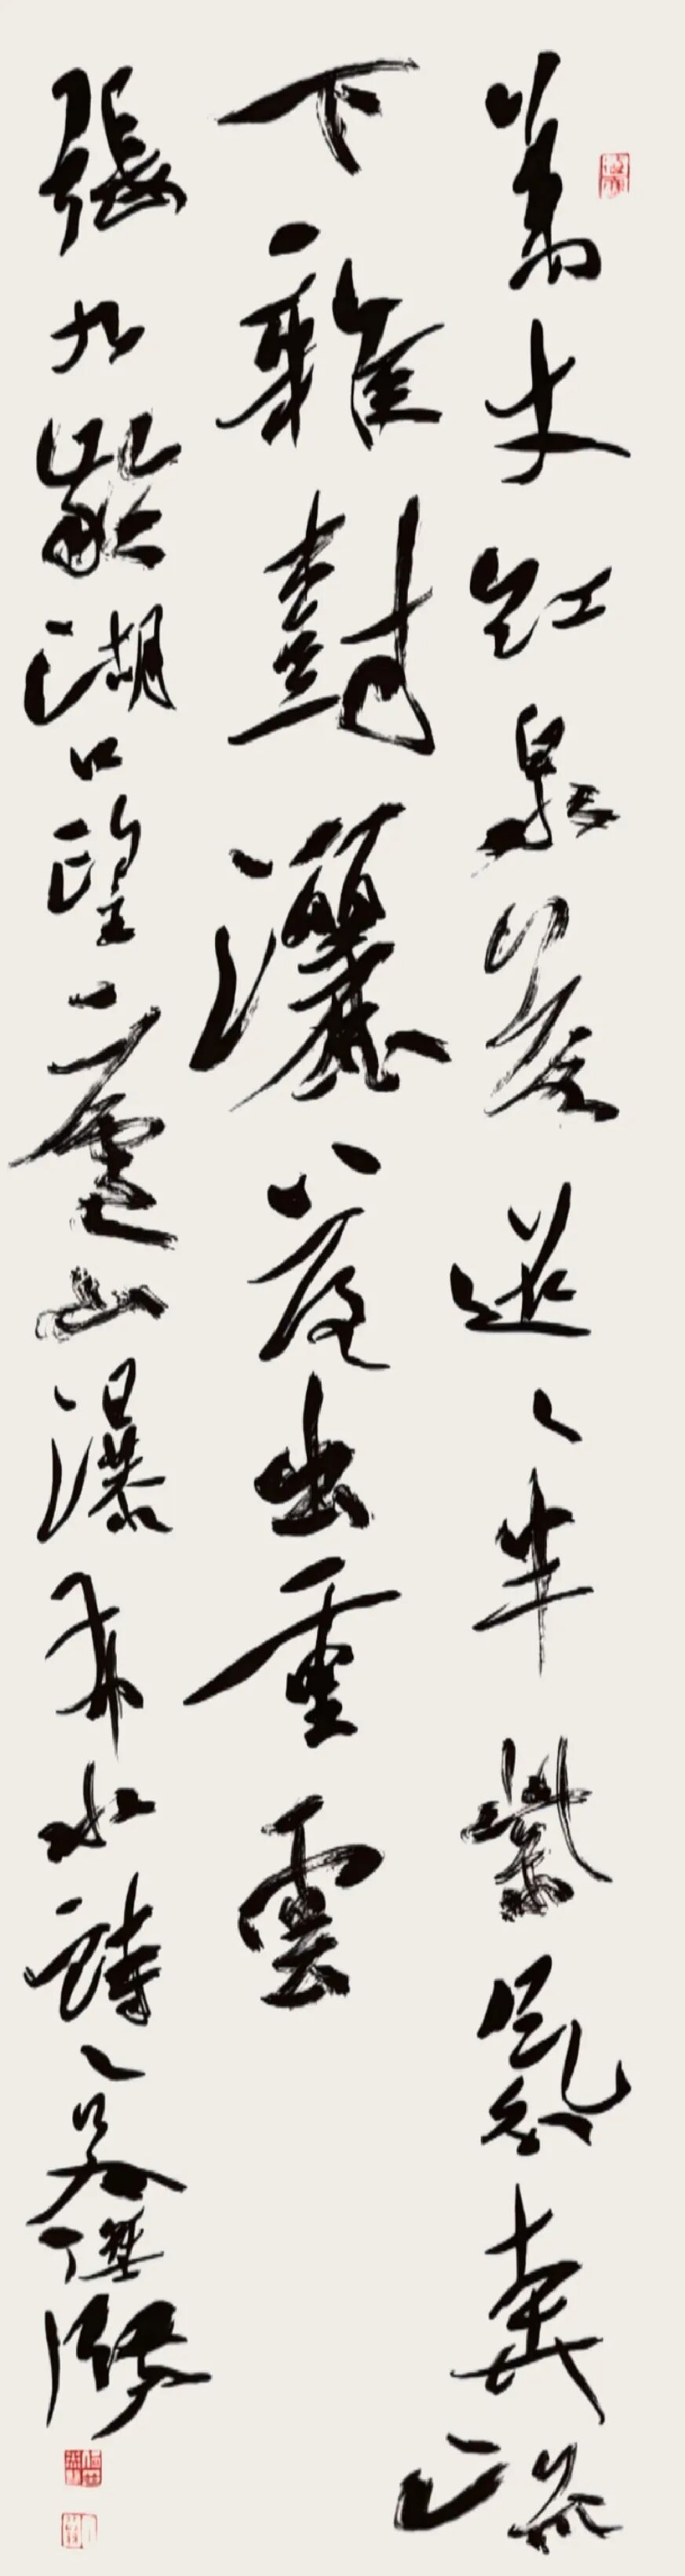 萬丈紅泉落迢々半紫氛奔流
下雜樹灑落出重雲
張九齡湖口望廬山瀑布水詩